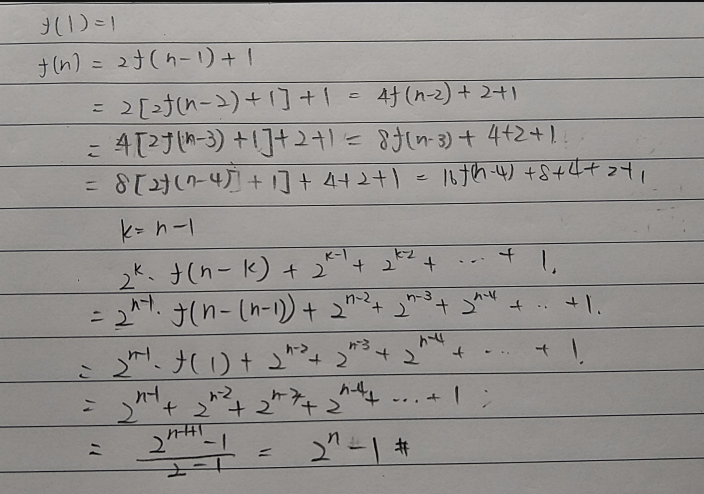 f(1)=1
f(n) = 2f(n-1)+1
= 2[2f(n-2)+1]+1 = 4f(n-2)+2+1
= 4[2f(n-3)+1]+2+1 = 8f(n-3)+4+2+1
= 8[2f(n-4)+1]+4+2+1 = 16f(n-4)+8+4+2+1
k=n-1
2^k · f(n-k) + 2^{k-1} + 2^{k-2} + ... + 1.
= 2^{n-1} · f(n-(n-1)) + 2^{n-2} + 2^{n-3} + 2^{n-4} + .. +1.
= 2^{n-1} · f(1) + 2^{n-2} + 2^{n-3} + 2^{n-4} + ... + 1.
= 2^{n-1} + 2^{n-2} + 2^{n-3} + 2^{n-4} + ... + 1
= \frac{2^{n-1+1}-1}{2-1} = 2^n - 1 #